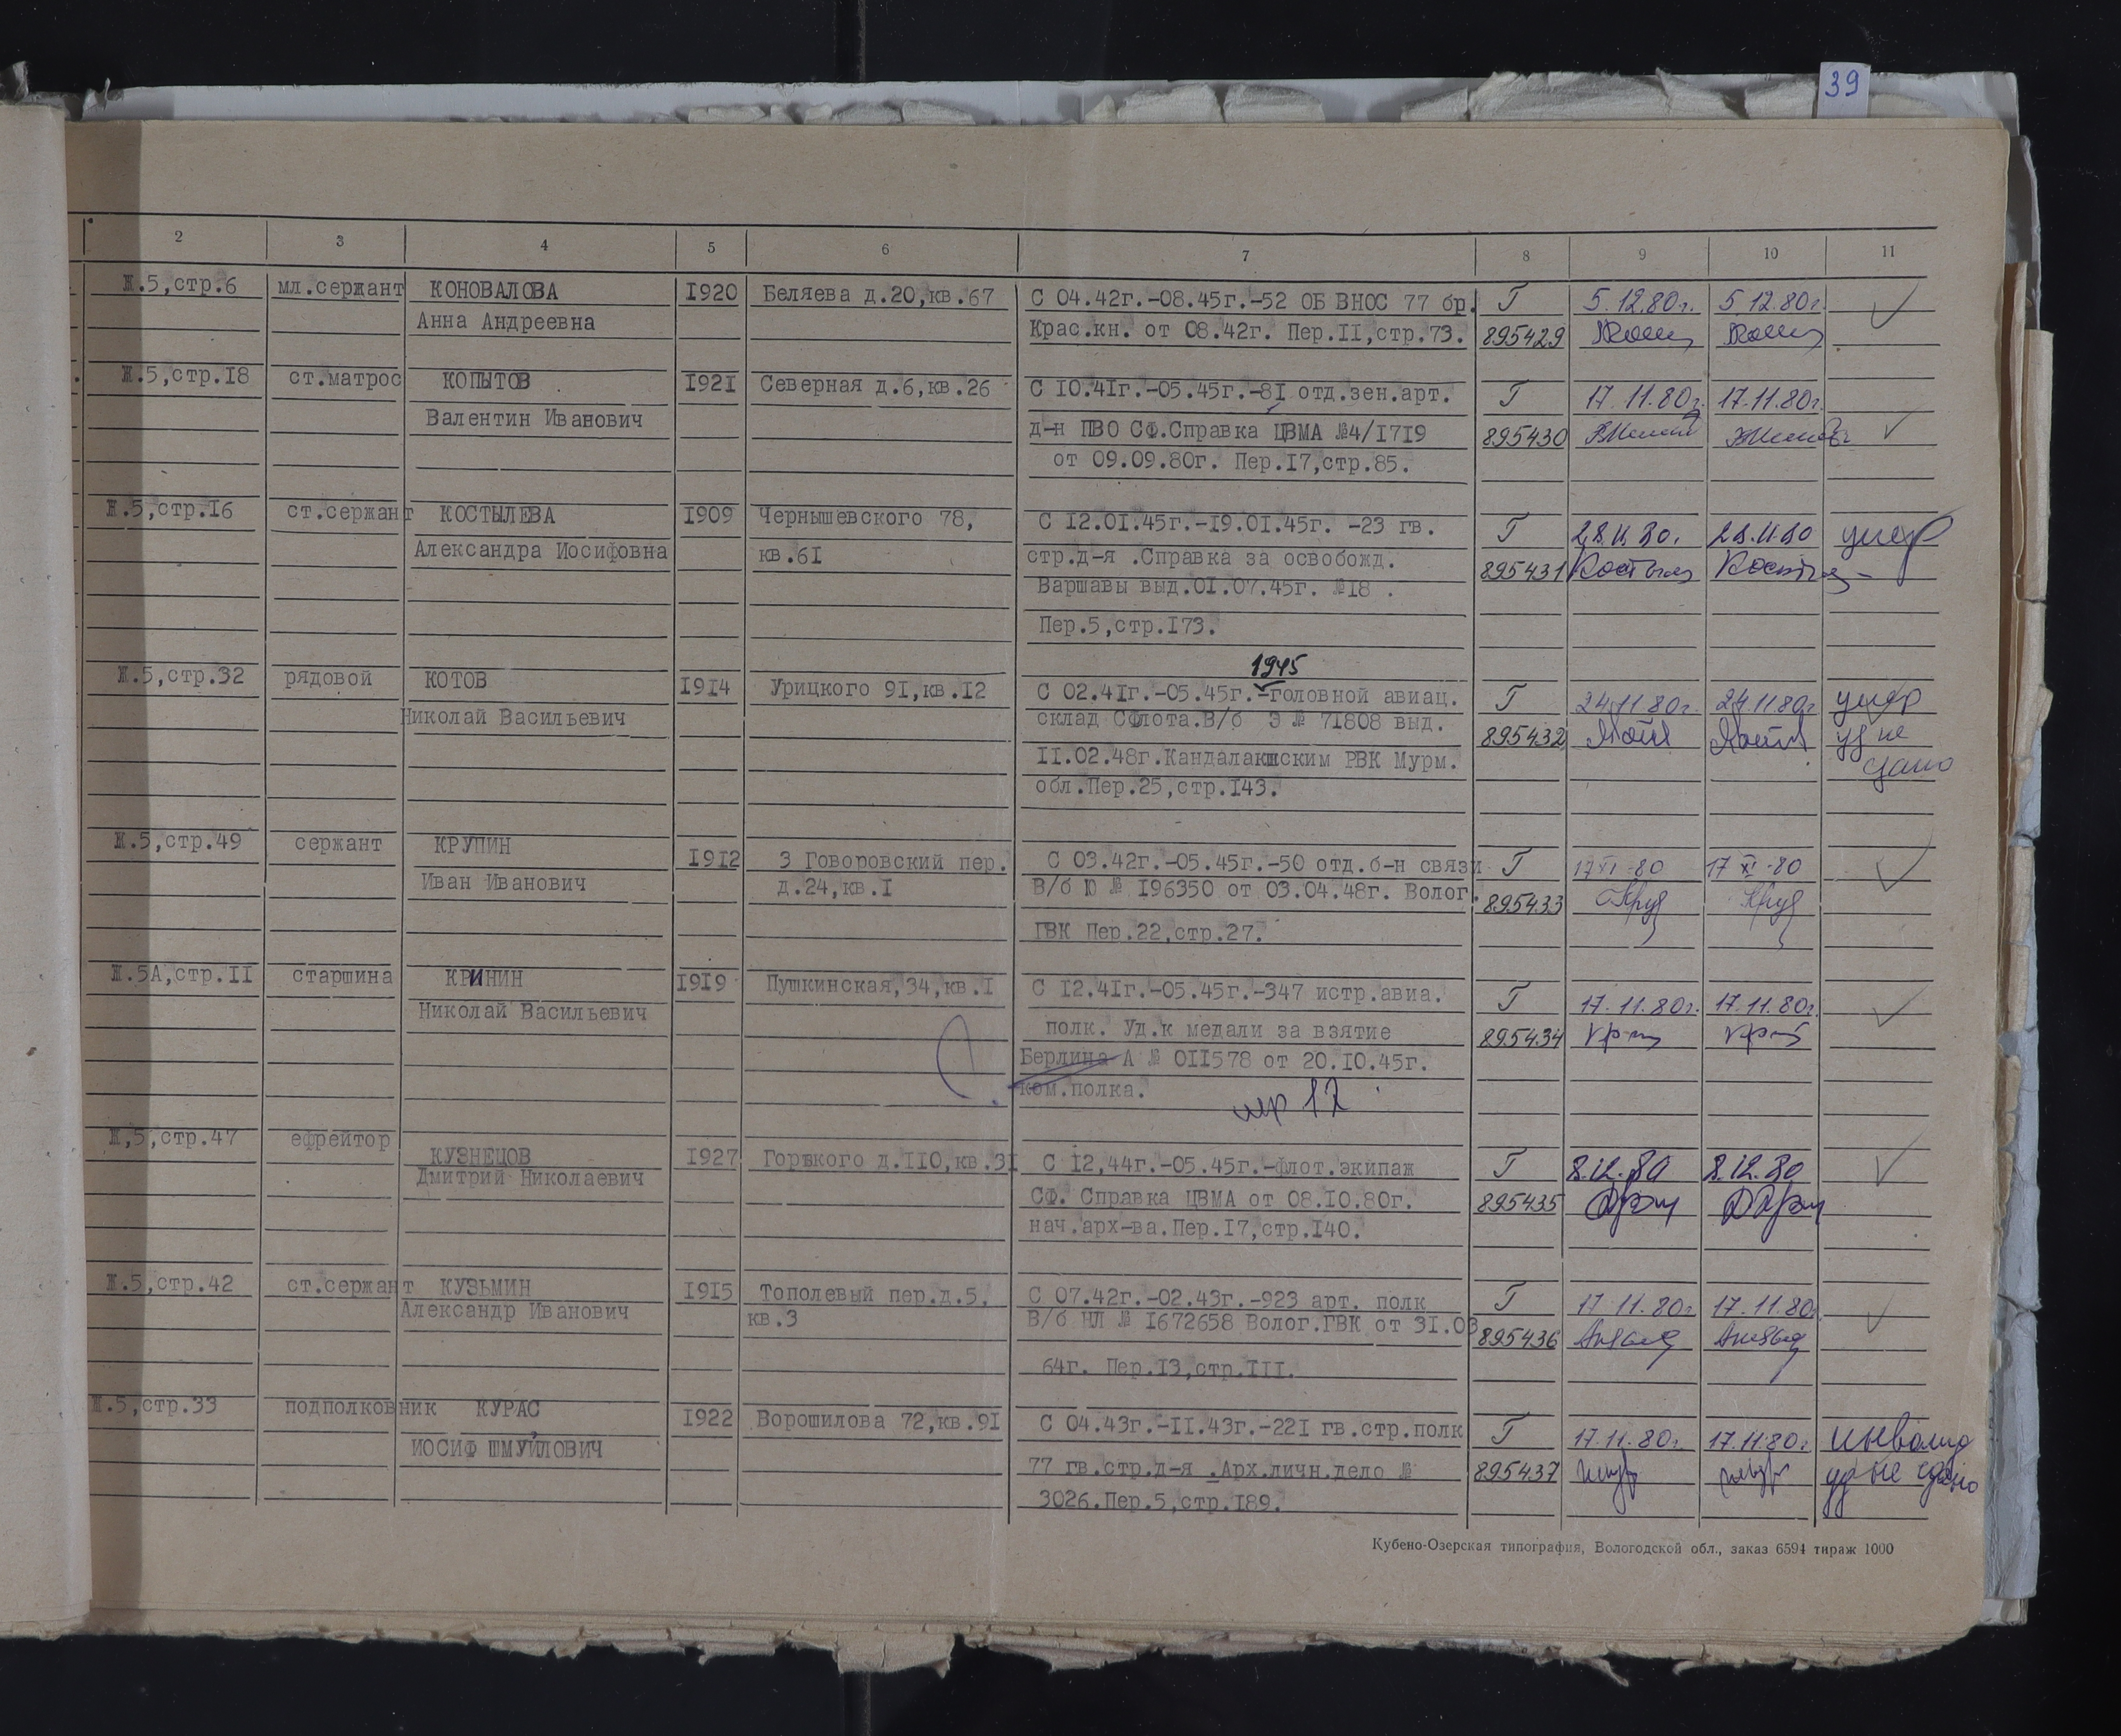 39
2 3 4 5 6 7 8 9 10 11
Ж.5,стр.6 мл.сержант КОНОВАЛОВА I920 Беляева д.20,кв.67 С 04.42г.-08.45г.-52 ОБ ВНОС 77 бр. Т 5.12.80г. 5.12.80г.
Анна Андреевна Крас.кн. от 08.42г. Пер.II,стр.73. 895429
Ж.5,стр.I8 ст.матрос КОПЫТОВ I92I Северная д.6,кв.26 С I0.4Iг.-05.45г.-8I отд.зен.арт. Т 17.11.80г. 17.11.80г.
Валентин Иванович д-н ПВО СФ.Справка ЦВМА №4/I7I9 895430
от 09.09.80г. Пер.I7,стр.85.
Ж.5,стр.I6 ст.сержант КОСТЫЛЕВА I909 Чернышевского 78, С I2.0I.45г.-I9.0I.45г. -23 гв. Т 28.11.80. 28.11.80 умер
Александра Иосифовна кв.6I стр.д-я .Справка за освобожд. 895431
Варшавы выд.0I.07.45г. №I8 .
Пер.5,стр.I73.
1945
Ж.5,стр.32 рядовой КОТОВ I9I4 Урицкого 9I,кв.I2 С 02.4Iг.-05.45г.-головной авиац. Т 24.11.80г. 24.11.80г умер
Николай Васильевич склад СФлота.В/б Э № 7I808 выд. 895432 уд не
II.02.48г.Кандалакшским РВК Мурм. сдано
обл.Пер.25,стр.I43.
Ж.5,стр.49 сержант КРУПИН I9I2 3 Говоровский пер. С 03.42г.-05.45г.-50 отд.б-н связи Т 17 XI -80 17 XI -80
Иван Иванович д.24,кв.I В/б Ю № I96350 от 03.04.48г. Волог. 895433
ГВК Пер.22,стр.27.
Ж.5А,стр.II старшина КРИНИН I9I9 Пушкинская,34,кв.I С I2.4Iг.-05.45г.-347 истр.авиа. Т 17.11.80г. 17.11.80г.
Николай Васильевич полк. Уд.к медали за взятие 895434
Берлина А № 0II578 от 20.I0.45г.
ком.полка.
Ж,5,стр.47 ефрейтор КУЗНЕЦОВ I927 Горького д.II0,кв.3I С I2,44г.-05.45г.-флот.экипаж Т 8.12.80 8.12.80
Дмитрий Николаевич СФ. Справка ЦВМА от 08.I0.80г. 895435
нач.арх-ва.Пер.I7,стр.I40.
Ж.5,стр.42 ст.сержант КУЗЬМИН I9I5 Тополевый пер.д.5, С 07.42г.-02.43г.-923 арт. полк Т 17.11.80г. 17.11.80г.
Александр Иванович кв.3 В/б НЛ № I672658 Волог.ГВК от 3I.03 895436
64г. Пер.I3,стр.III.
Ж.5,стр.33 подполковник КУРАС I922 Ворошилова 72,кв.9I С 04.43г.-II.43г.-22I гв.стр.полк Т 17.11.80г. 17.11.80г. инвалид
ИОСИФ ШМУЙЛОВИЧ 77 гв.стр.д-я .Арх.личн.дело № 895437 уд не сдано
3026.Пер.5,стр.I89.
Кубено-Озерская типография, Вологодской обл., заказ 6594 тираж 1000